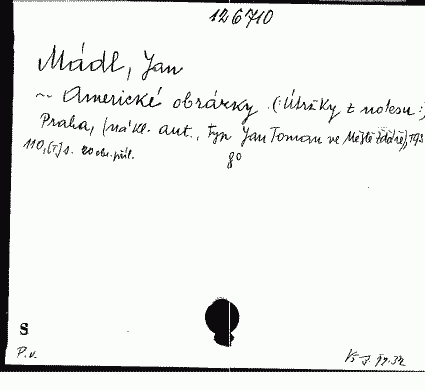 126710
Mádl, Jan
~ Americké obrázky (:Útržky z notesu:)
Praha, (nákl. aut., Typ. Jan Toman ve Městě Žďáře),
110, (1) s. 20 obr. příl. 8°
S
P. v.